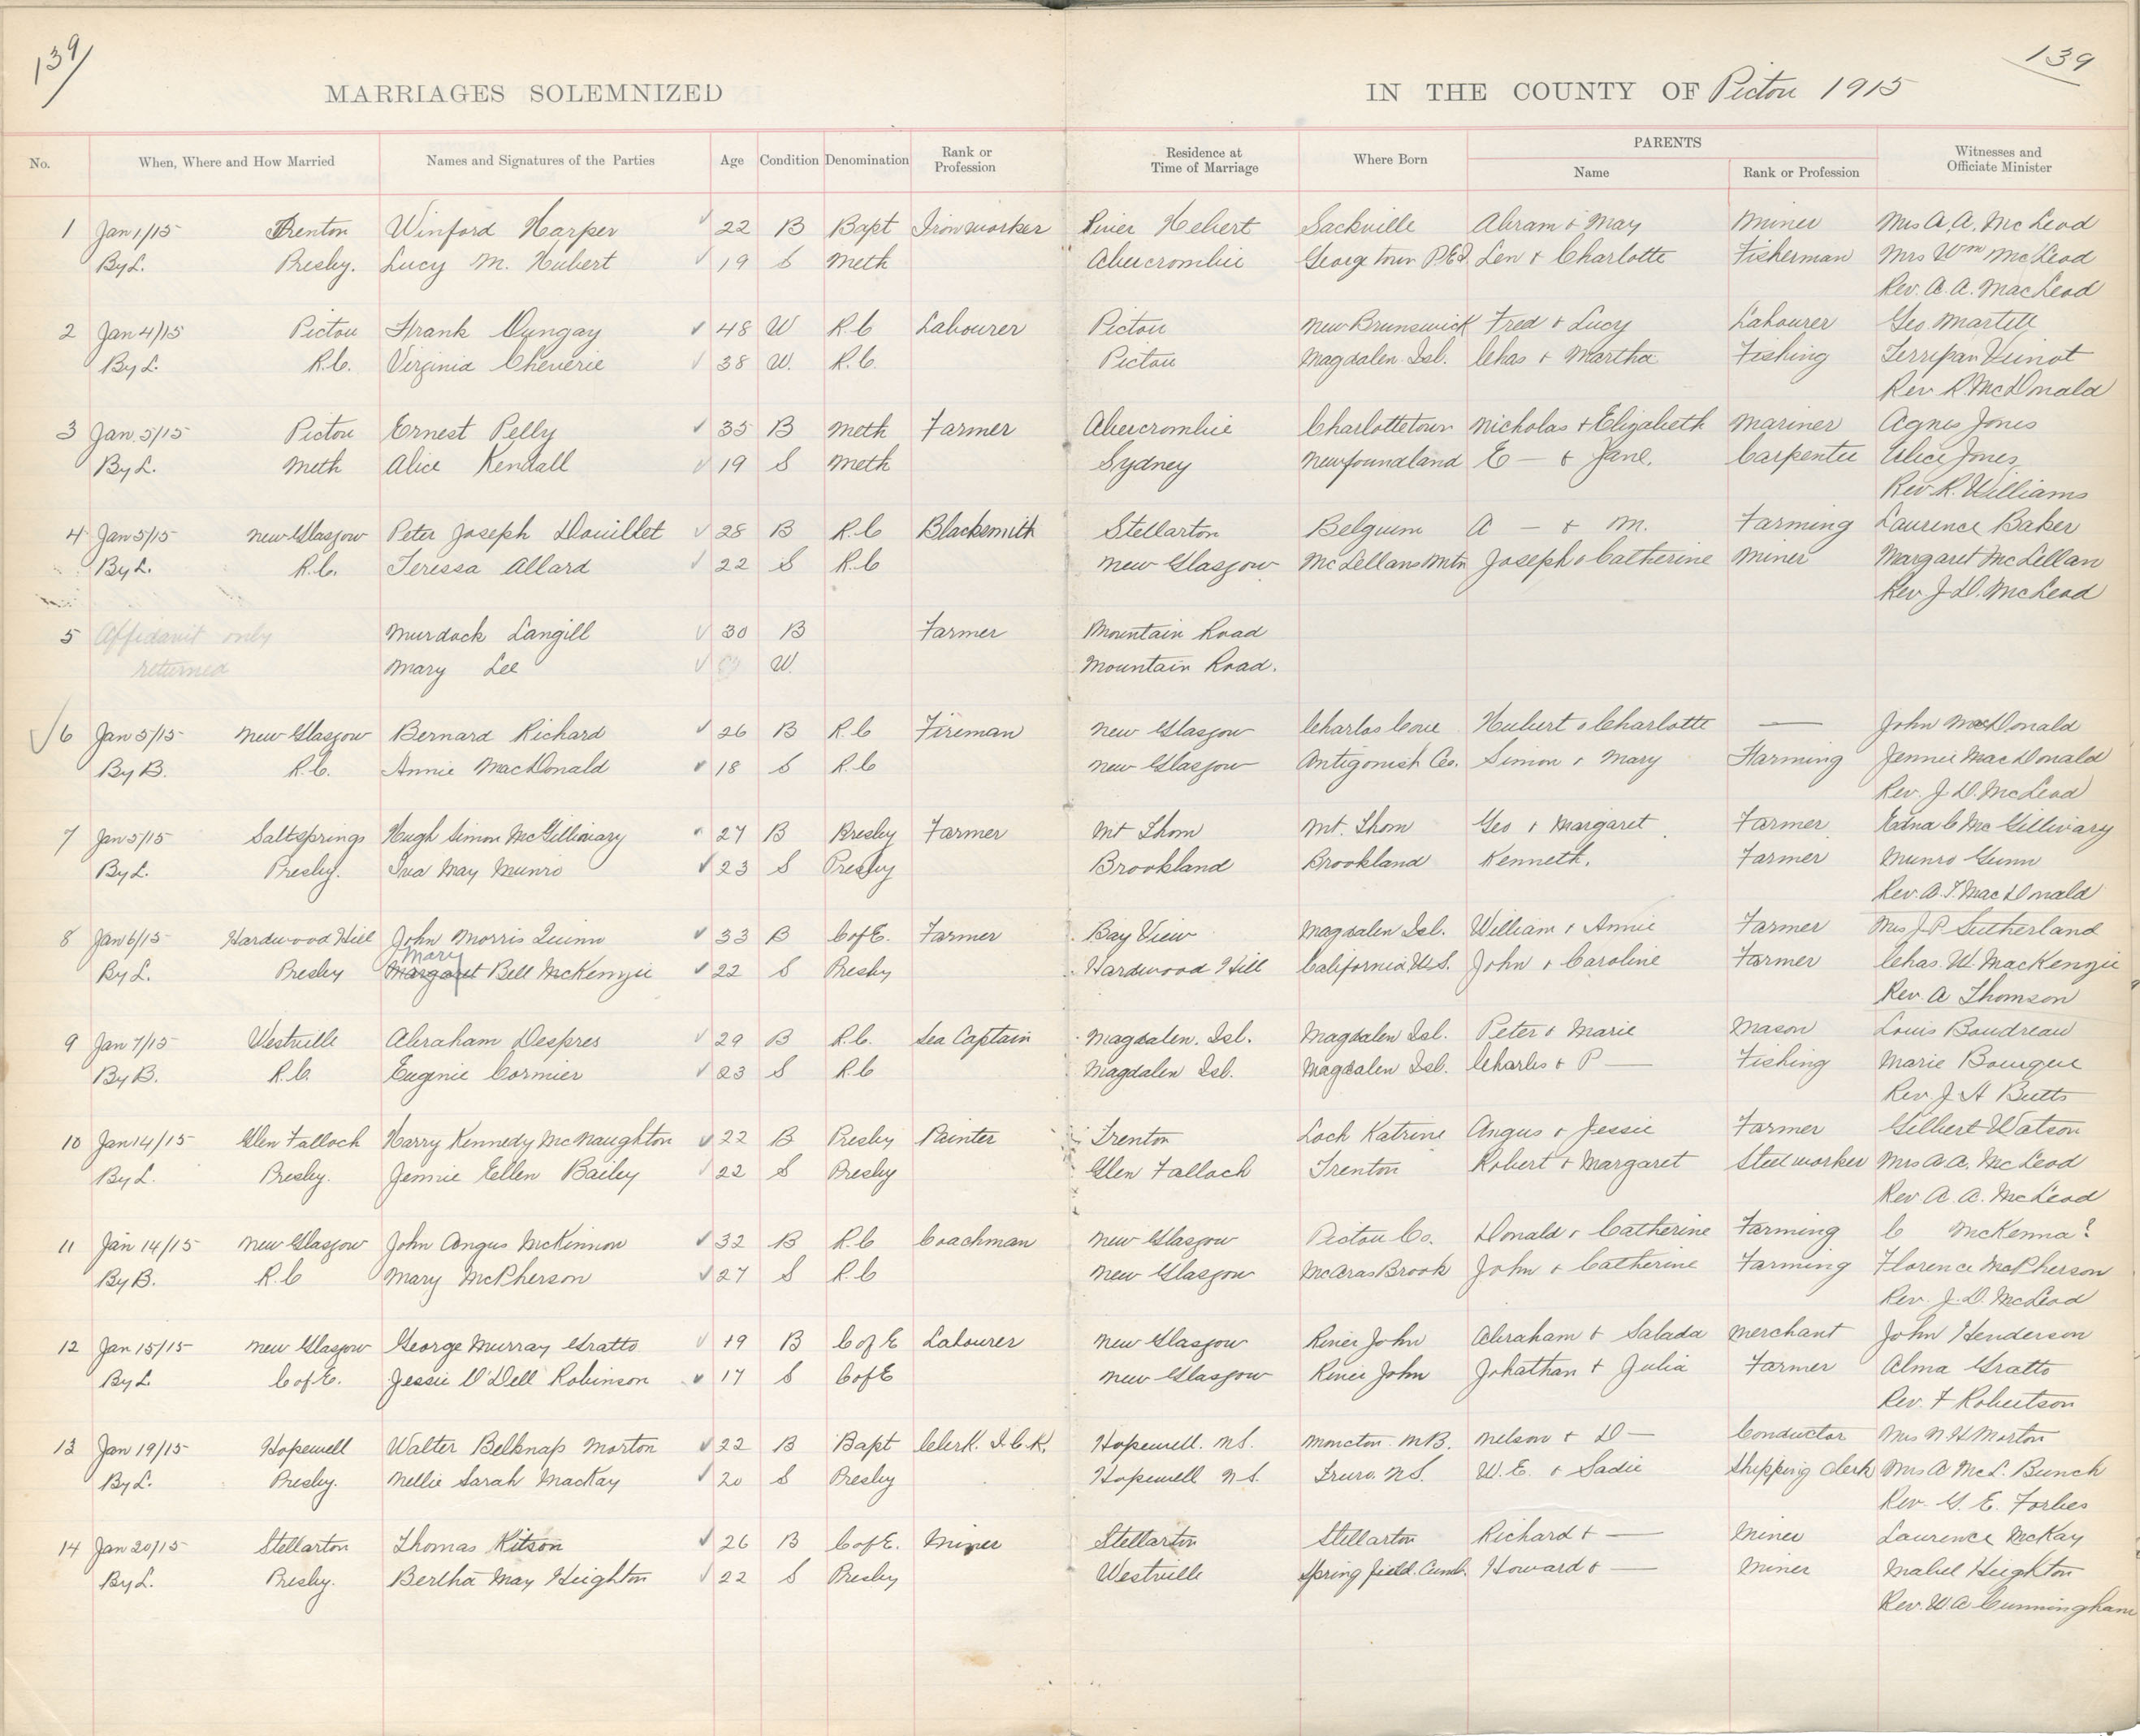 139/
139
MARRIAGES SOLEMNIZED IN THE COUNTY OF Pictou 1915
No. When, Where and How Married Names and Signatures of the Parties Age Condition Denomination Rank or Profession Residence at Time of Marriage Where Born PARENTS Name Rank or Profession Witnesses and Officiate Minister
1 Jan 1/15 Trenton Winford Harper 22 B Bapt Ironworker River Hebert Sackville Abram & May Miner Mrs A. A. McLeod
By L. Presby. Lucy M. Hubert 19 S Meth Abercrombie Georgetown P.E.I. Len & Charlotte Fisherman Mrs Wm McLeod
Rev. A. A. MacLeod
2 Jan 4/15 Pictou Frank Dungay 48 W R.C Labourer Pictou New Brunswick Fred & Lucy Labourer Geo. Martell
By L. R.C. Virginia Cheverie 38 W. R.C. Pictou Magdalen Isl. Chas & Martha Fishing
Rev R. McDonald
3 Jan. 5/15 Pictou Ernest Pelly 35 B Meth Farmer Abercrombie Charlottetown Nicholas & Elizabeth Mariner Agnes Jones
By L. Meth Alice Kendall 19 S Meth Sydney Newfoundland E — & Jane. Carpenter Alice Jones
Rev. R. Williams
4 Jan 5/15 New Glasgow Peter Joseph Douillet 28 B R.C Blacksmith Stellarton Belguim A — & M. Farming Laurence Baker
By L. R.C. Teressa Allard 22 S R.C New Glasgow McLellans Mtn Joseph & Catherine Miner Margaret McLellan
Rev J. D. McLeod
5 Affidavit only Murdock Langill 30 B Farmer Mountain Road
returned Mary Lee W. Mountain Road.
6 Jan 5/15 New Glasgow Bernard Richard 26 B R.C Fireman New Glasgow Charlos Cove Hubert & Charlotte — John MacDonald
By B. R.C. Annie MacDonald 18 S R.C New Glasgow Antigonish Co. Simon & Mary Farming Jennie MacDonald
Rev. J. D. McLeod
7 Jan 5/15 Saltsprings Hugh Simon McGillivary 27 B Presby Farmer Mt Thom Mt. Thom Geo & Margaret Farmer Edna C McGillivary
By L. Presby. Iva May Munro 23 S Presby Brookland Brookland Kenneth. Farmer Munro Gunn
Rev. A. F. MacDonald
8 Jan 6/15 Hardwood Hill John Morris Quinn 33 B C of E. Farmer Bay View Magdalen Isl. William & Annie Farmer Mrs J. P. Sutherland
Mary
By L. Presby Margaret Bell McKenzie 22 S Presby Hardwood Hill California U.S. John & Caroline Farmer Chas. W. MacKenzie
Rev. A Thomson
9 Jan 7/15 Westville Abraham Despres 29 B R.C. Sea Captain Magdalen. Isl. Magdalen Isl. Peter & Marie Mason Louis Boudreau
By B. R.C. Eugenie Cormier 23 S R.C Magdalen Isl. Magdalen Isl. Charles & P — Fishing Marie
Rev J. H Butts
10 Jan 14/15 Glen Falloch Harry Kennedy McNaughton 22 B Presby Painter Trenton Loch Katrine Angus & Jessie Farmer Gilbert Watson
By L. Presby. Jennie Ellen Bailey 22 S Presby Glen Falloch Trenton Robert & Margaret Steelworker Mrs A A. McLeod
Rev A. A. McLeod
11 Jan 14/15 New Glasgow John Angus McKinnon 32 B R.C Coachman New Glasgow Pictou Co. Donald & Catherine Farming C McKenna?
By B. R.C Mary McPherson 27 S R.C New Glasgow McAras Brook John & Catherine Farming Florence McPherson
Rev. J. D. McLeod
12 Jan 15/15 New Glasgow George Murray Gratto 19 B C of E Labourer New Glasgow River John Abraham & Salada Merchant John Henderson
By L C of E. Jessie O'Dell Robinson 17 S C of E New Glasgow River John Johathan & Julia Farmer Alma Gratto
Rev. F Robertson
13 Jan 19/15 Hopewell Walter Belknap Morton 22 B Bapt Clerk. I.C.R. Hopewell. N.S. Moncton. N.B. Nelson & D — Conductor Mrs N. H Morton
By L. Presby. Nellie Sarah MacKay 20 S Presby Hopewell N.S. Truro. N.S. W. E. & Sadie Shipping Clerk Mrs A McL. Bunch
Rev. G. E. Forbes
14 Jan 20/15 Stellarton Thomas Kitson 26 B C of E. Miner Stellarton Stellarton Richard & — Miner Laurence McKay
By L. Presby. Bertha May Heighton 22 S Presby Westville Springfield. Cumb. Howard & — Miner Mabel Heighton
Rev. W A Cunningham